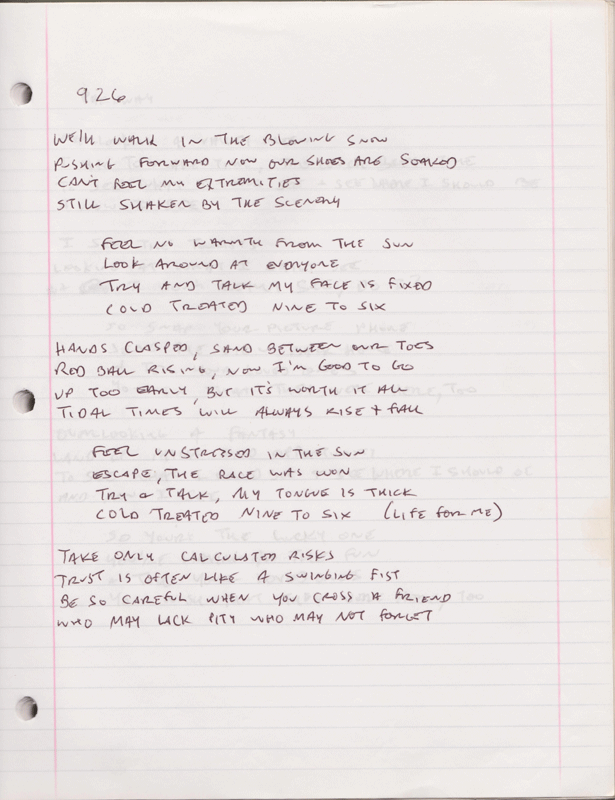 926
WE'LL WALK IN THE BLOWING SNOW
PUSHING FORWARD NOW OUR SHOES ARE SOAKED
CAN'T FEEL MY EXTREMITIES
STILL SHAKEN BY THE SCENERY
FEEL NO WARMTH FROM THE SUN
LOOK AROUND AT EVERYONE
TRY AND TALK MY FACE IS FIXED
COLD TREATED NINE TO SIX
HANDS CLASPED, SAND BETWEEN OUR TOES
RED BALL RISING, NOW I'M GOOD TO GO
UP TOO EARLY, BUT IT'S WORTH IT ALL
TIDAL TIMES WILL ALWAYS RISE + FALL
FEEL UNSTRESSED IN THE SUN
ESCAPE, THE RACE WAS WON
TRY & TALK, MY TONGUE IS THICK
COLD TREATED NINE TO SIX (LIFE FOR ME)
TAKE ONLY CALCULATED RISKS
TRUST IS OFTEN LIKE A SWINGING FIST
BE SO CAREFUL WHEN YOU CROSS A FRIEND
WHO MAY LACK PITY WHO MAY NOT FORGET